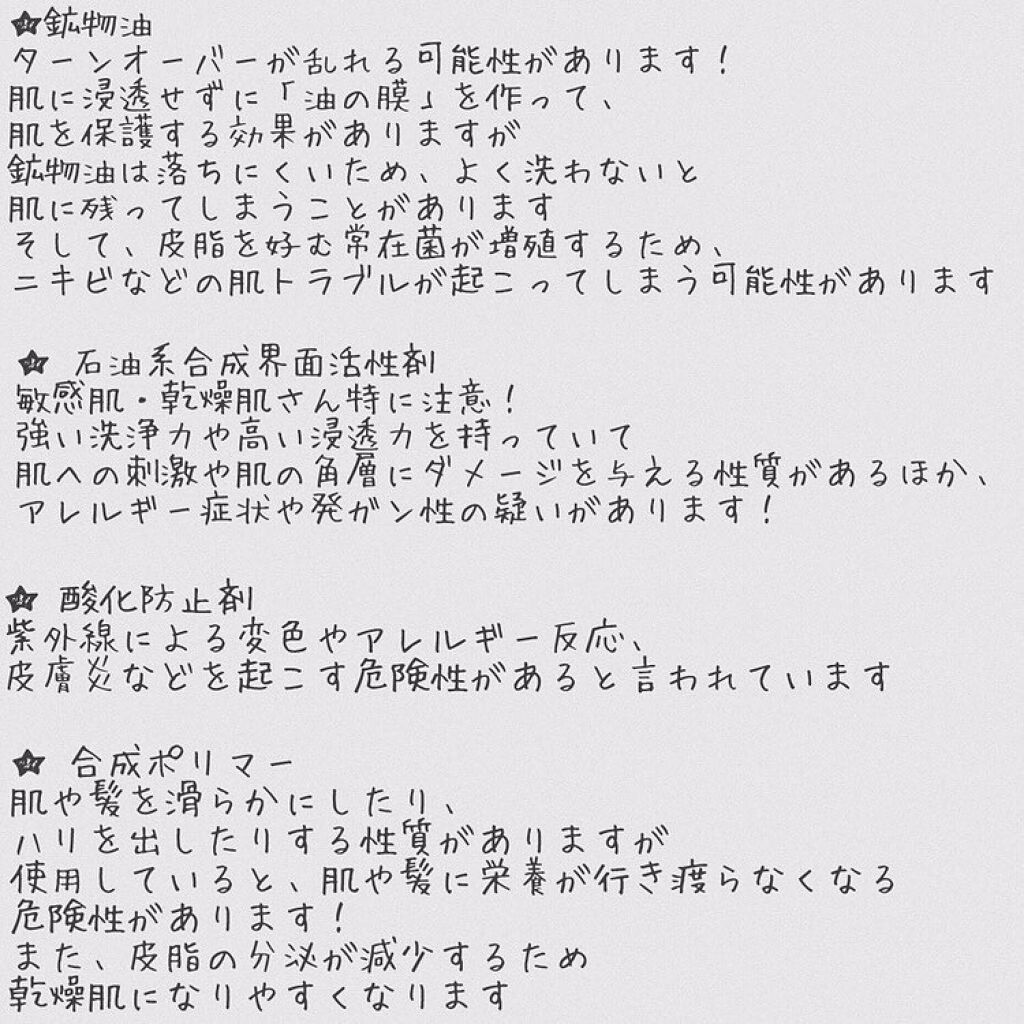 ★鉱物油
ターンオーバーが乱れる可能性があります！
肌に浸透せずに「油の膜」を作って、
肌を保護する効果がありますが
鉱物油は落ちにくいため、よく洗わないと
肌に残ってしまうことがあります
そして、皮脂を好む常在菌が増殖するため、
ニキビなどの肌トラブルが起こってしまう可能性があります
★ 石油系合成界面活性剤
敏感肌・乾燥肌さん特に注意！
強い洗浄力や高い浸透力を持っていて
肌への刺激や肌の角層にダメージを与える性質があるほか、
アレルギー症状や発ガン性の疑いがあります！
★ 酸化防止剤
紫外線による変色やアレルギー反応、
皮膚炎などを起こす危険性があると言われています
★ 合成ポリマー
肌や髪を滑らかにしたり、
ハリを出したりする性質がありますが
使用していると、肌や髪に栄養が行き渡らなくなる
危険性があります！
また、皮脂の分泌が減少するため
乾燥肌になりやすくなります